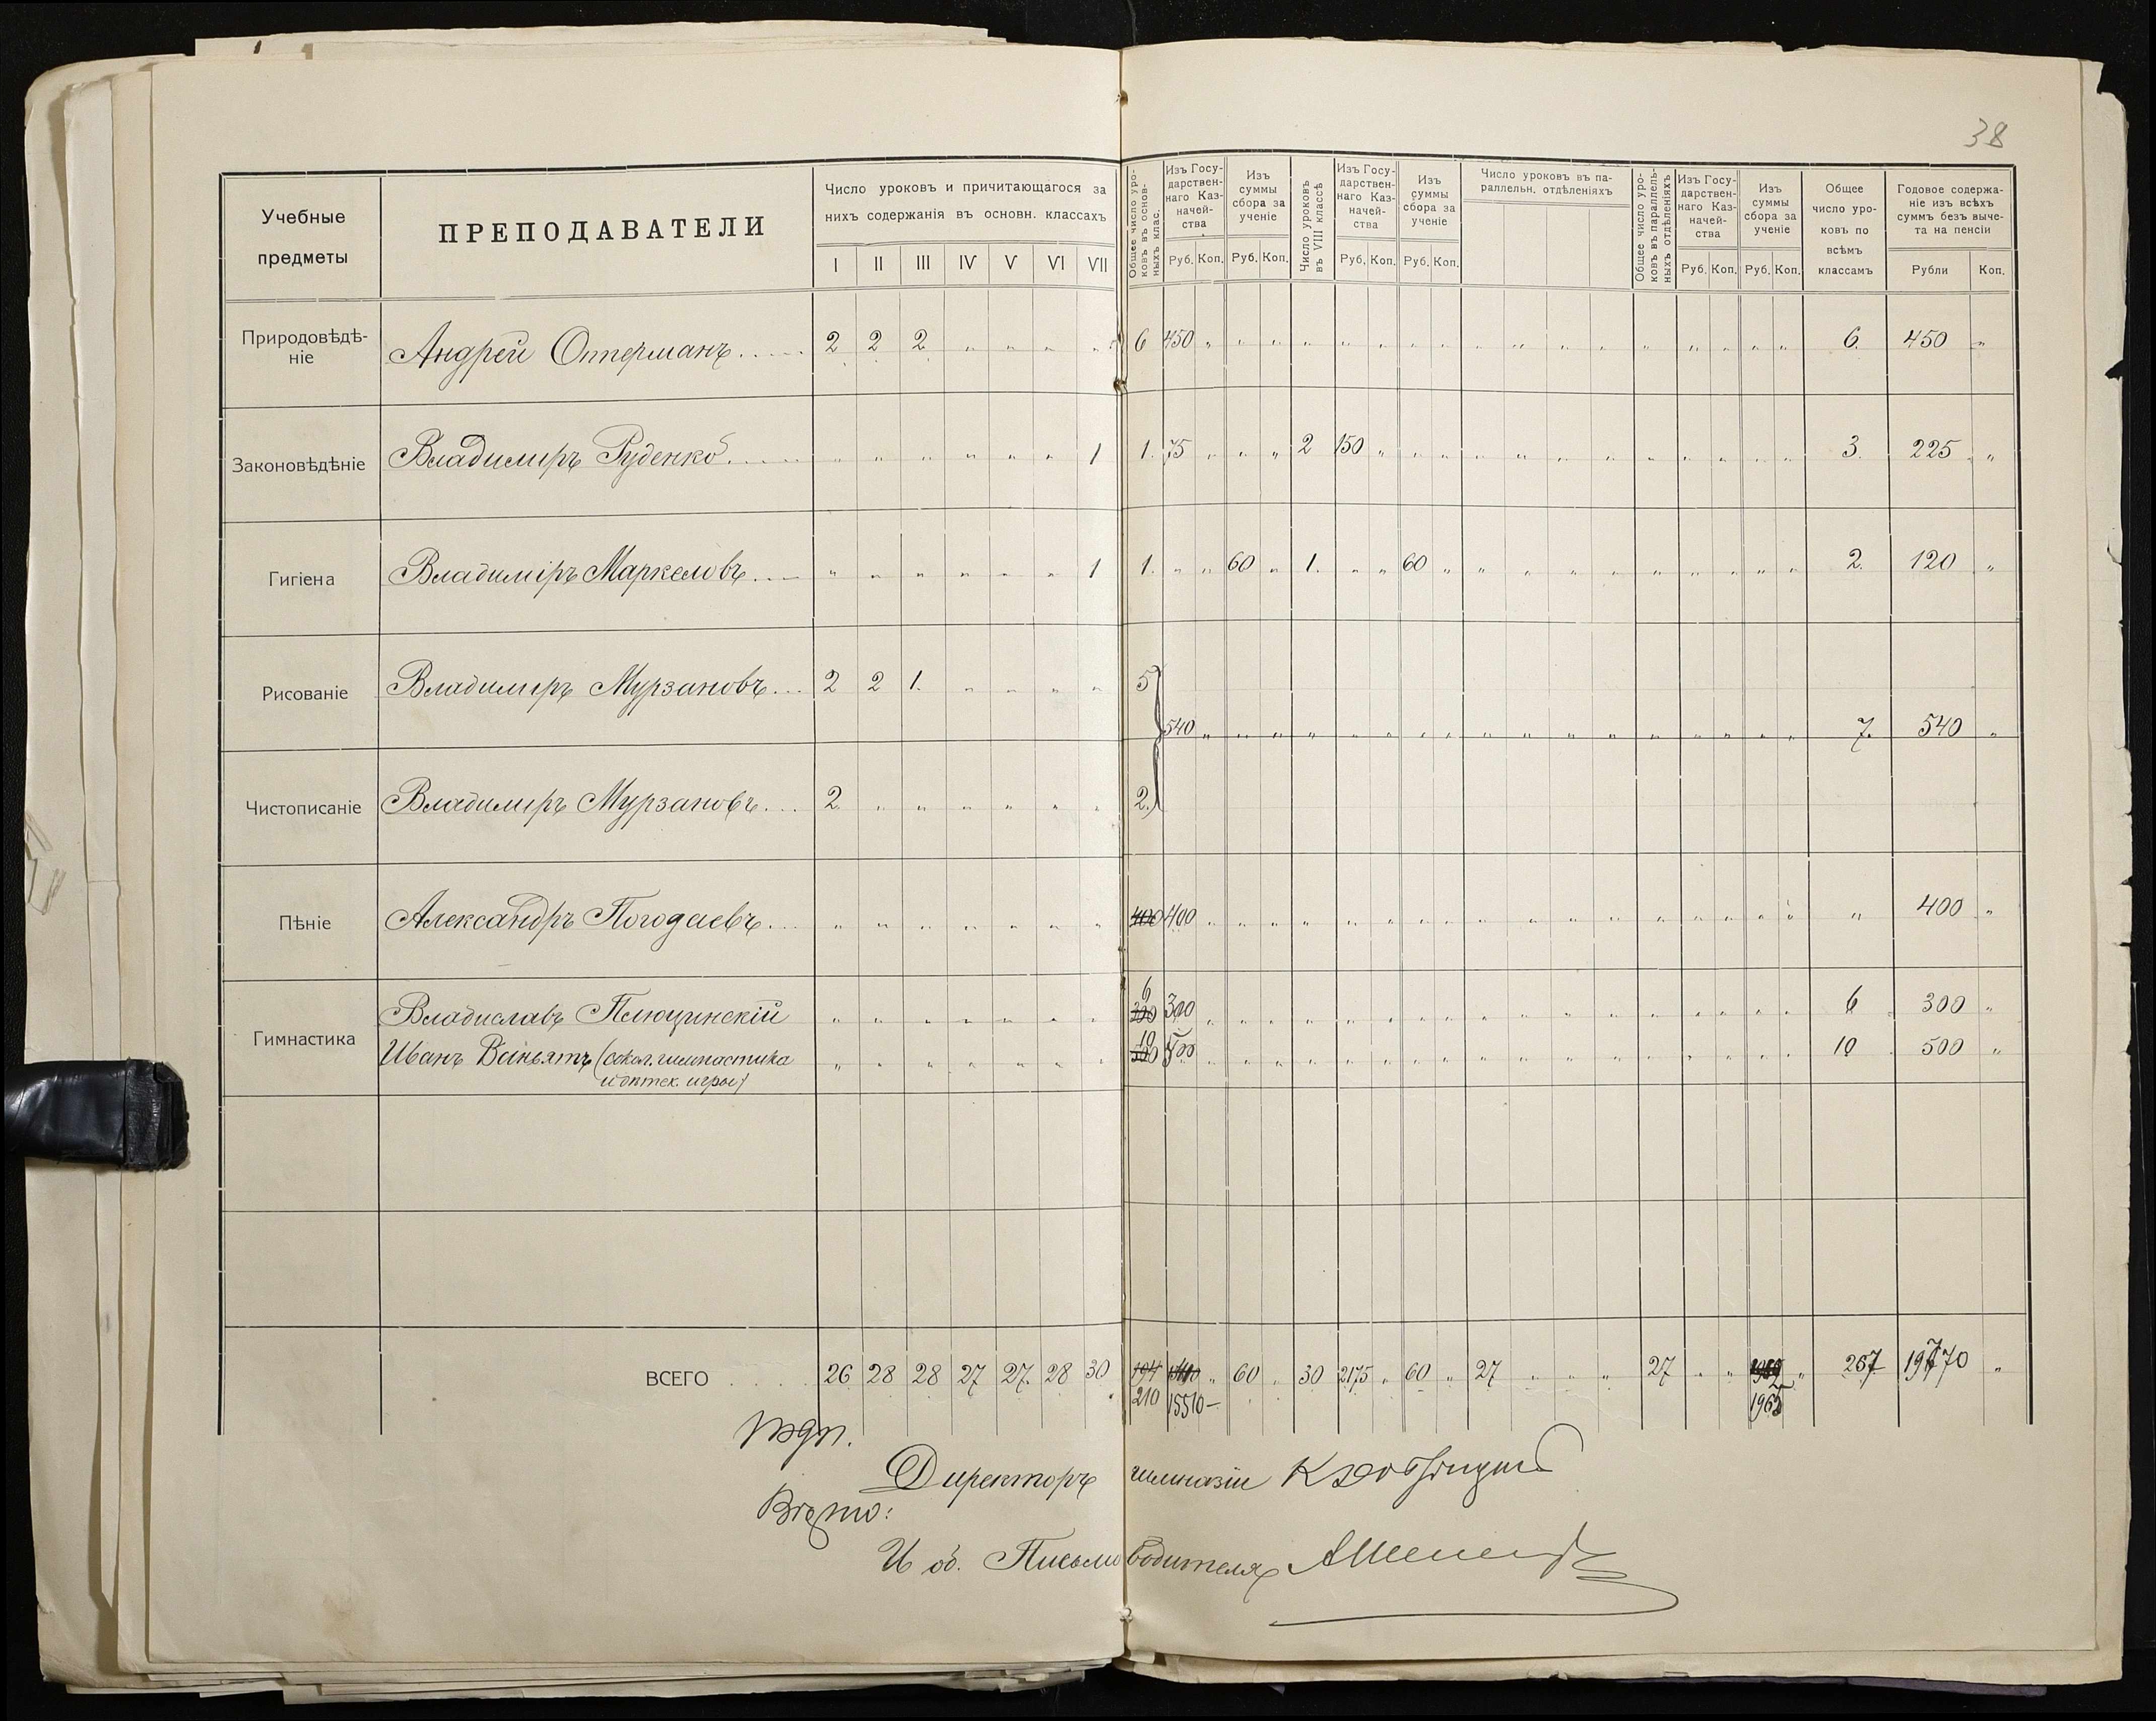 38
Учебные предметы
ПРЕПОДАВАТЕЛИ
Число уроковъ и причитающагося за
нихъ содержанія въ основн. классахъ
I II III IV V VI VII
Общее число уро-
ковъ въ основ-
ныхъ клас.
Изъ Госу-
дарствен-
наго Каз-
начей-
ства
Руб. Коп.
Изъ
суммы
сбора за
ученіе
Руб. Коп.
Число уроковъ
въ VIII классѣ
Изъ Госу-
дарствен-
наго Каз-
начей-
ства
Руб. Коп.
Изъ
суммы
сбора за
ученіе
Руб. Коп.
Число уроковъ въ па-
раллельн. отдѣленіяхъ
Общее число уро-
ковъ въ параллель-
ныхъ отдѣленіяхъ
Изъ Госу-
дарствен-
наго Каз-
начей-
ства
Руб. Коп.
Изъ
суммы
сбора за
ученіе
Руб. Коп.
Общее
число уро-
ковъ по
всѣмъ
классамъ
Годовое содержа-
ніе изъ всѣхъ
суммъ безъ выче-
та на пенсіи
Рубли Коп.
Природовѣдѣ-
ніе
Андрей Оттерманъ 2 2 2 " " " " 6 450 " " " " " " " " " " " " " " " " " 6. 450 "
Законовѣдѣніе Владимиръ Руденко " " " " " " 1 1. 75 " " " 2 150 " " " " " " " " " " " " 3. 225 "
Гигіена Владиміръ Маркеловъ " " " " " " 1 1. " " 60 " 1. " " 60 " " " " " " " " " " 2. 120 "
Рисованіе Владимиръ Мурзановъ 2 2 1. " " " " 5
540 " " " " " " " " " " " " " " " " " 7. 540 "
Чистописаніе Владимиръ Мурзановъ 2 " " " " " " 2.
Пѣніе Александръ Погодаевъ " " " " " " " 400 400 " " " " " " " " " " " " " " " " " " 400 "
Гимнастика
Владиславъ Плющинскій " " " " " " " 6 300 300 " " " " " " " " " " " " " " " " " 6 300 "
Иванъ Ваньятъ (сокол. гимнастика " " " " " " " 10 500 500 " " " " " " " " " " " " " " " " " 10 500 "
игры)
ВСЕГО 26 28 28 27 27. 28 30 194 " 60 " 30 2175 " 60 " 27 " " " 27 " " " 267 19770 "
210 15510— 1965
Директоръ гимназіи
Вѣрно:
И об. Письмоводителя